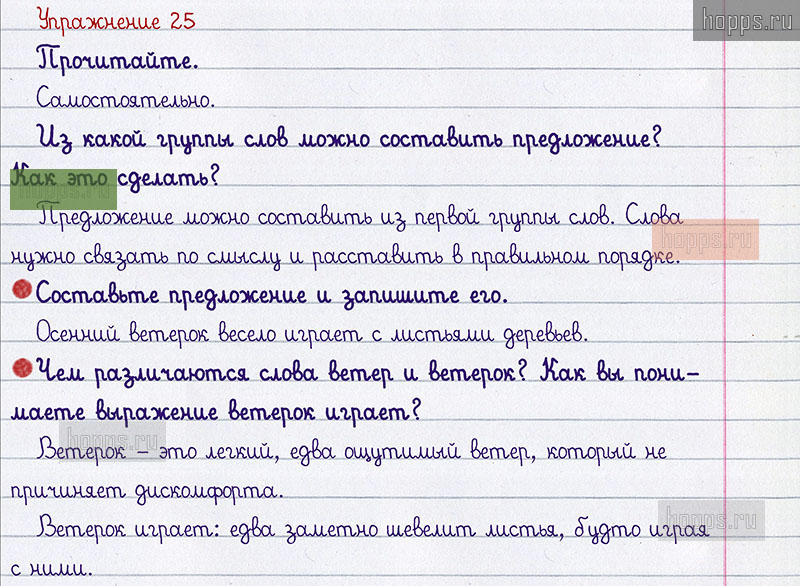 Упражнение 25
hopps.ru
Прочитайте.
Самостоятельно.
Из какой группы слов можно составить предложение?
Как это сделать?
hopps.ru
Предложение можно составить из первой группы слов. Слова
hopps.ru
нужно связать по смыслу и расставить в правильном порядке.
Составьте предложение и запишите его.
Осенний ветерок весело играет с листьями деревьев.
Чем различаются слова ветер и ветерок? Как вы пони-
маете выражение ветерок играет?
hopps.ru
Ветерок – это легкий, едва ощутимый ветер, который не
причиняет дискомфорта.
hopps.ru
Ветерок играет: едва заметно шевелит листья, будто играя
с ними.